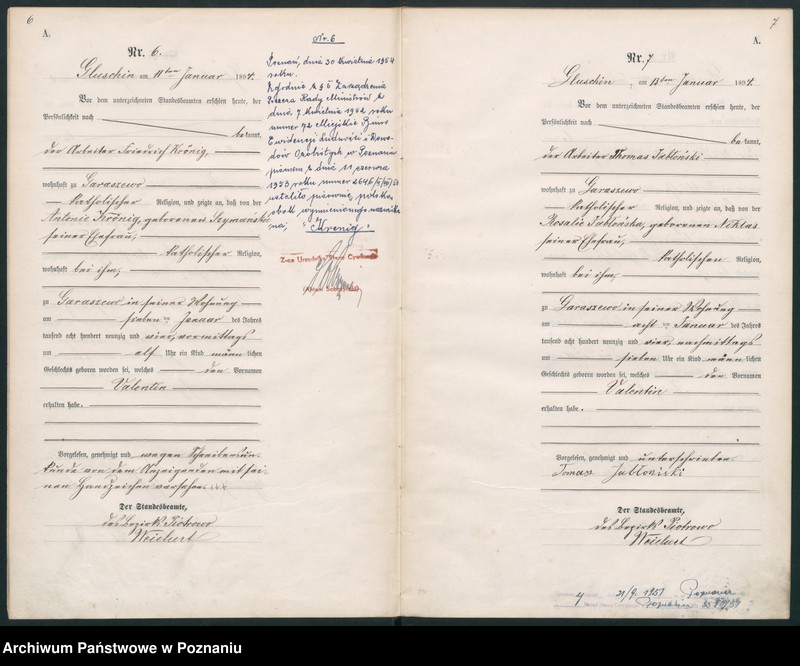 6
A.
Nr. 6.
Gluschin am 11ten Januar 1894.
Vor dem unterzeichneten Standesbeamten erschien heute, der
Persönlichkeit nach
bekannt,
der Arbeiter Friedrich Krönig,
wohnhaft zu Garaszewo
katholischer Religion, und zeigte an, daß von der
Antonie Krönig, geborenen Szymańska
seiner Ehefrau,
katholischer Religion,
wohnhaft bei ihm,
zu Garaszewo in seiner Wohnung
am sieben ten Januar des Jahres
tausend acht hundert neunzig und vier, vormittags
um elf Uhr ein Kind männlichen
Geschlechts geboren worden sei, welches den Vornamen
Valentin
erhalten habe.
Vorgelesen, genehmigt und wegen Schreibensun-
kunde von dem Anzeigenden mit sei-
nem Handzeichen versehen. +++
Der Standesbeamte,
des Bezirk Piotrowo
Nr. 6
Poznań, dnia 30 kwietnia 1954
roku.
Zgodnie z § 5 Zarządzenia
Prezesa Rady Ministrów z
dnia 7 kwietnia 1952 roku
numer 72 Miejskie Biuro
Ewidencji Ludności i Dowo-
dów Osobistych w Poznaniu
pismem z dnia 11 czerwca
1953 roku numer
ustaliło pisownię polską
obok wymienionego nazwiska
na: "Krenig"
7
A.
Nr. 7
Gluschin, am 13ten Januar 1894.
Vor dem unterzeichneten Standesbeamten erschien heute, der
Persönlichkeit nach
bekannt,
der Arbeiter Thomas Jabłoński
wohnhaft zu Garaszewo
katholischer Religion, und zeigte an, daß von der
Rosalie Jabłońska, geborenen Niklas
seiner Ehefrau,
katholischen Religion,
wohnhaft bei ihm,
zu Garaszewo in seiner Wohnung
am acht ten Januar des Jahres
tausend acht hundert neunzig und vier, nachmittags
um sieben Uhr ein Kind männlichen
Geschlechts geboren worden sei, welches den Vornamen
Valentin
erhalten habe.
Vorgelesen, genehmigt und unterschrieben.
Tomasz Jabłoński
Der Standesbeamte,
des Bezirk Piotrowo
Archiwum Państwowe w Poznaniu